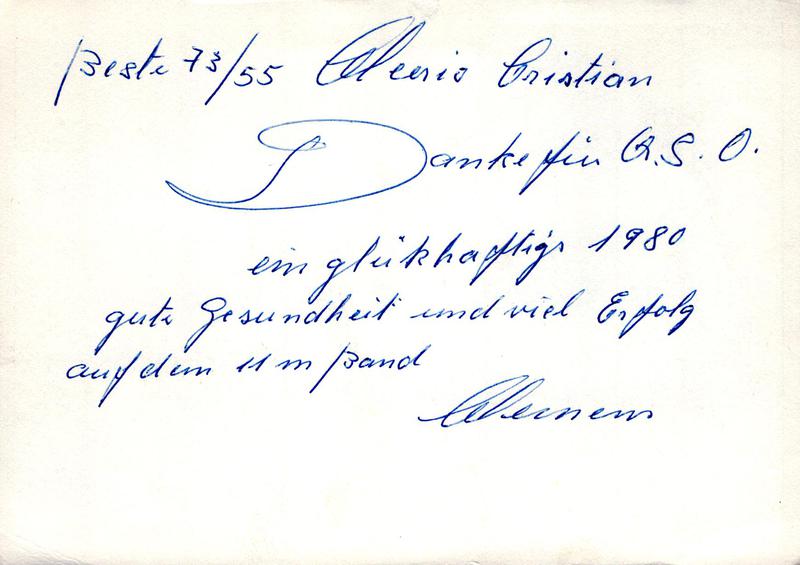 Beste 73/55 Cristian
Danke für Q.S.O.
ein glükhaftigs 1980
gute Gesundheit und viel Erfolg
auf dem 11 m Band
Clemens